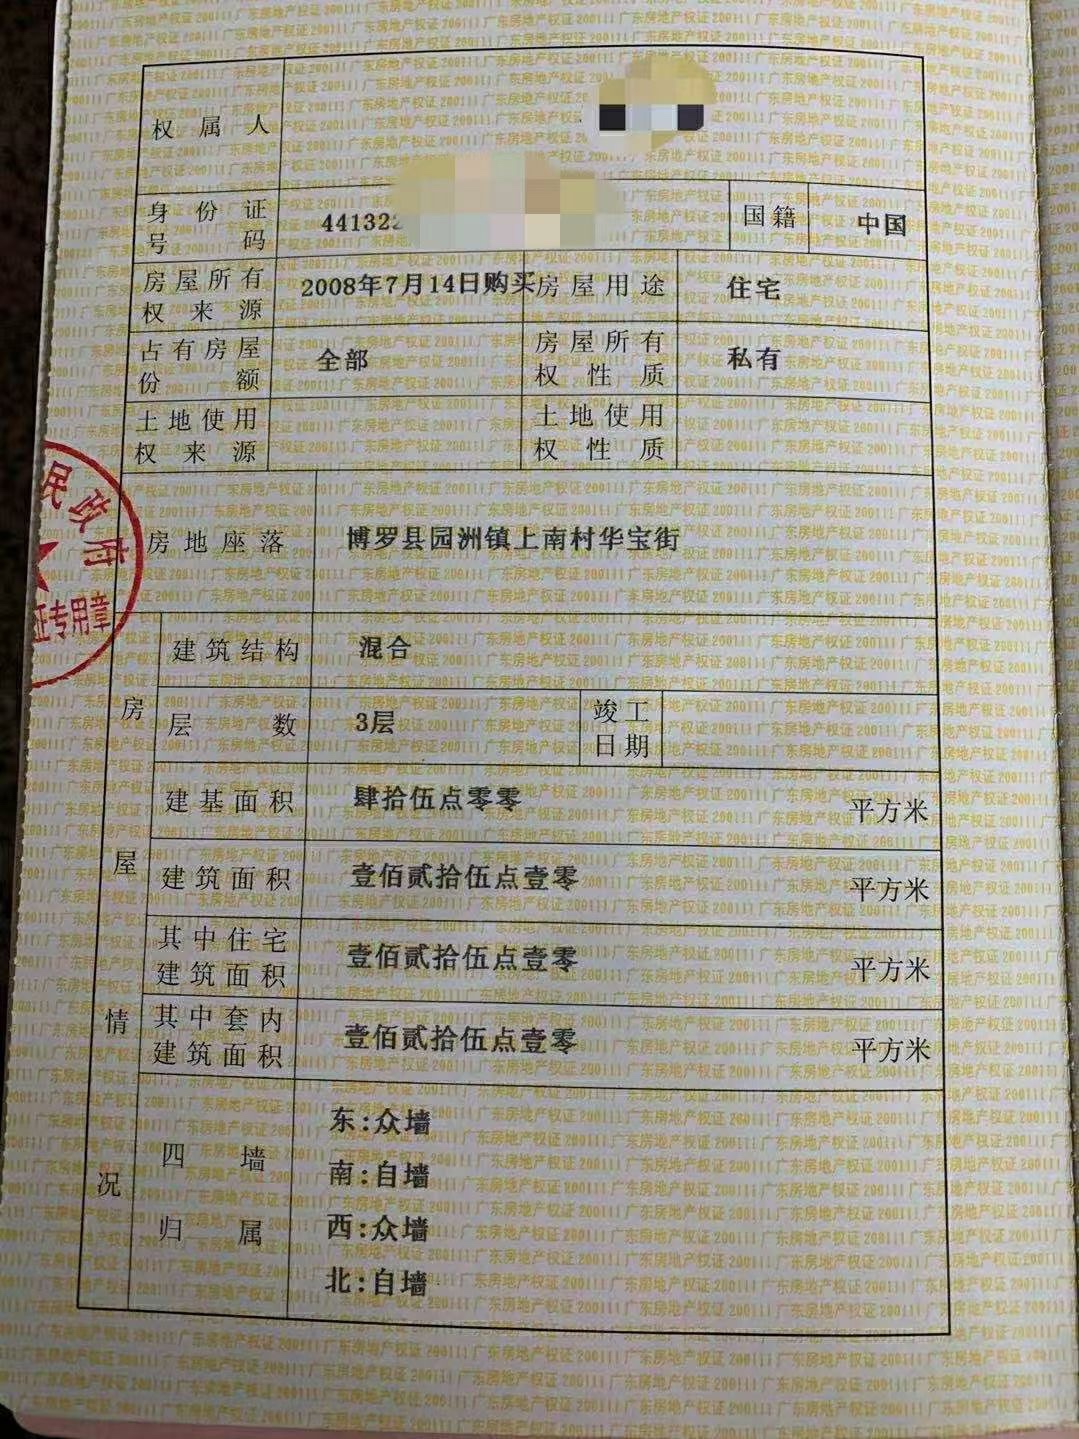 权属人
身份证号码 441322 国籍 中国
房屋所有权来源 2008年7月14日购买 房屋用途 住宅
占有房屋份额 全部 房屋所有权性质 私有
土地使用权来源 土地使用权性质
房地座落 博罗县园洲镇上南村华宝街
民政府
证专用章
房屋情况
建筑结构 混合
层数 3层 竣工日期
建基面积 肆拾伍点零零 平方米
建筑面积 壹佰贰拾伍点壹零 平方米
其中住宅建筑面积 壹佰贰拾伍点壹零 平方米
其中套内建筑面积 壹佰贰拾伍点壹零 平方米
四墙归属
东:众墙
南:自墙
西:众墙
北:自墙
广东房地产权证200111